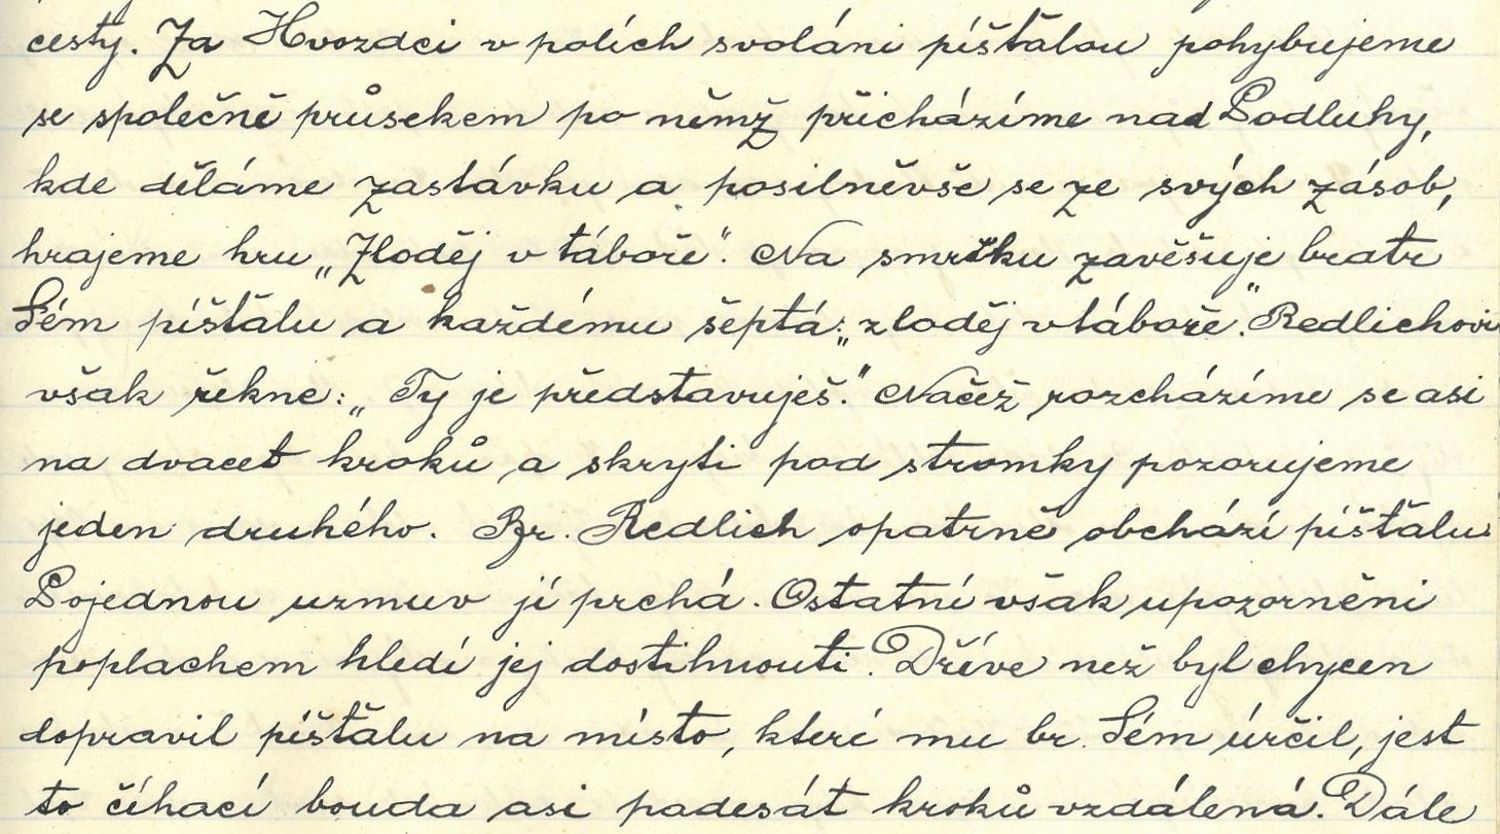 cesty. Za Hvozdci v polích svoláni píšťalou pohybujeme
se společně průsekem po němž přicházíme nad Podluhy,
kde děláme zastávku a posilněvše se ze svých zásob,
hrajeme hru „Zloděj v táboře". Na smrčku zavěšuje bratr
Sém píšťalu a každému šeptá: „zloděj v táboře". Redlichovi
však řekne: „Ty je představuješ." Načež rozcházíme se asi
na dvacet kroků a skryti pod stromky pozorujeme
jeden druhého. Br. Redlich opatrně obchází píšťalu
Pojednou uzmuv jí prchá. Ostatní však upozorněni
poplachem hledí jej dostihnouti. Dříve než byl chycen
dopravil píšťalu na místo, kteří mu br. Sém úrčil, jest
to číhací bouda asi padesát kroků vzdálená. Dále